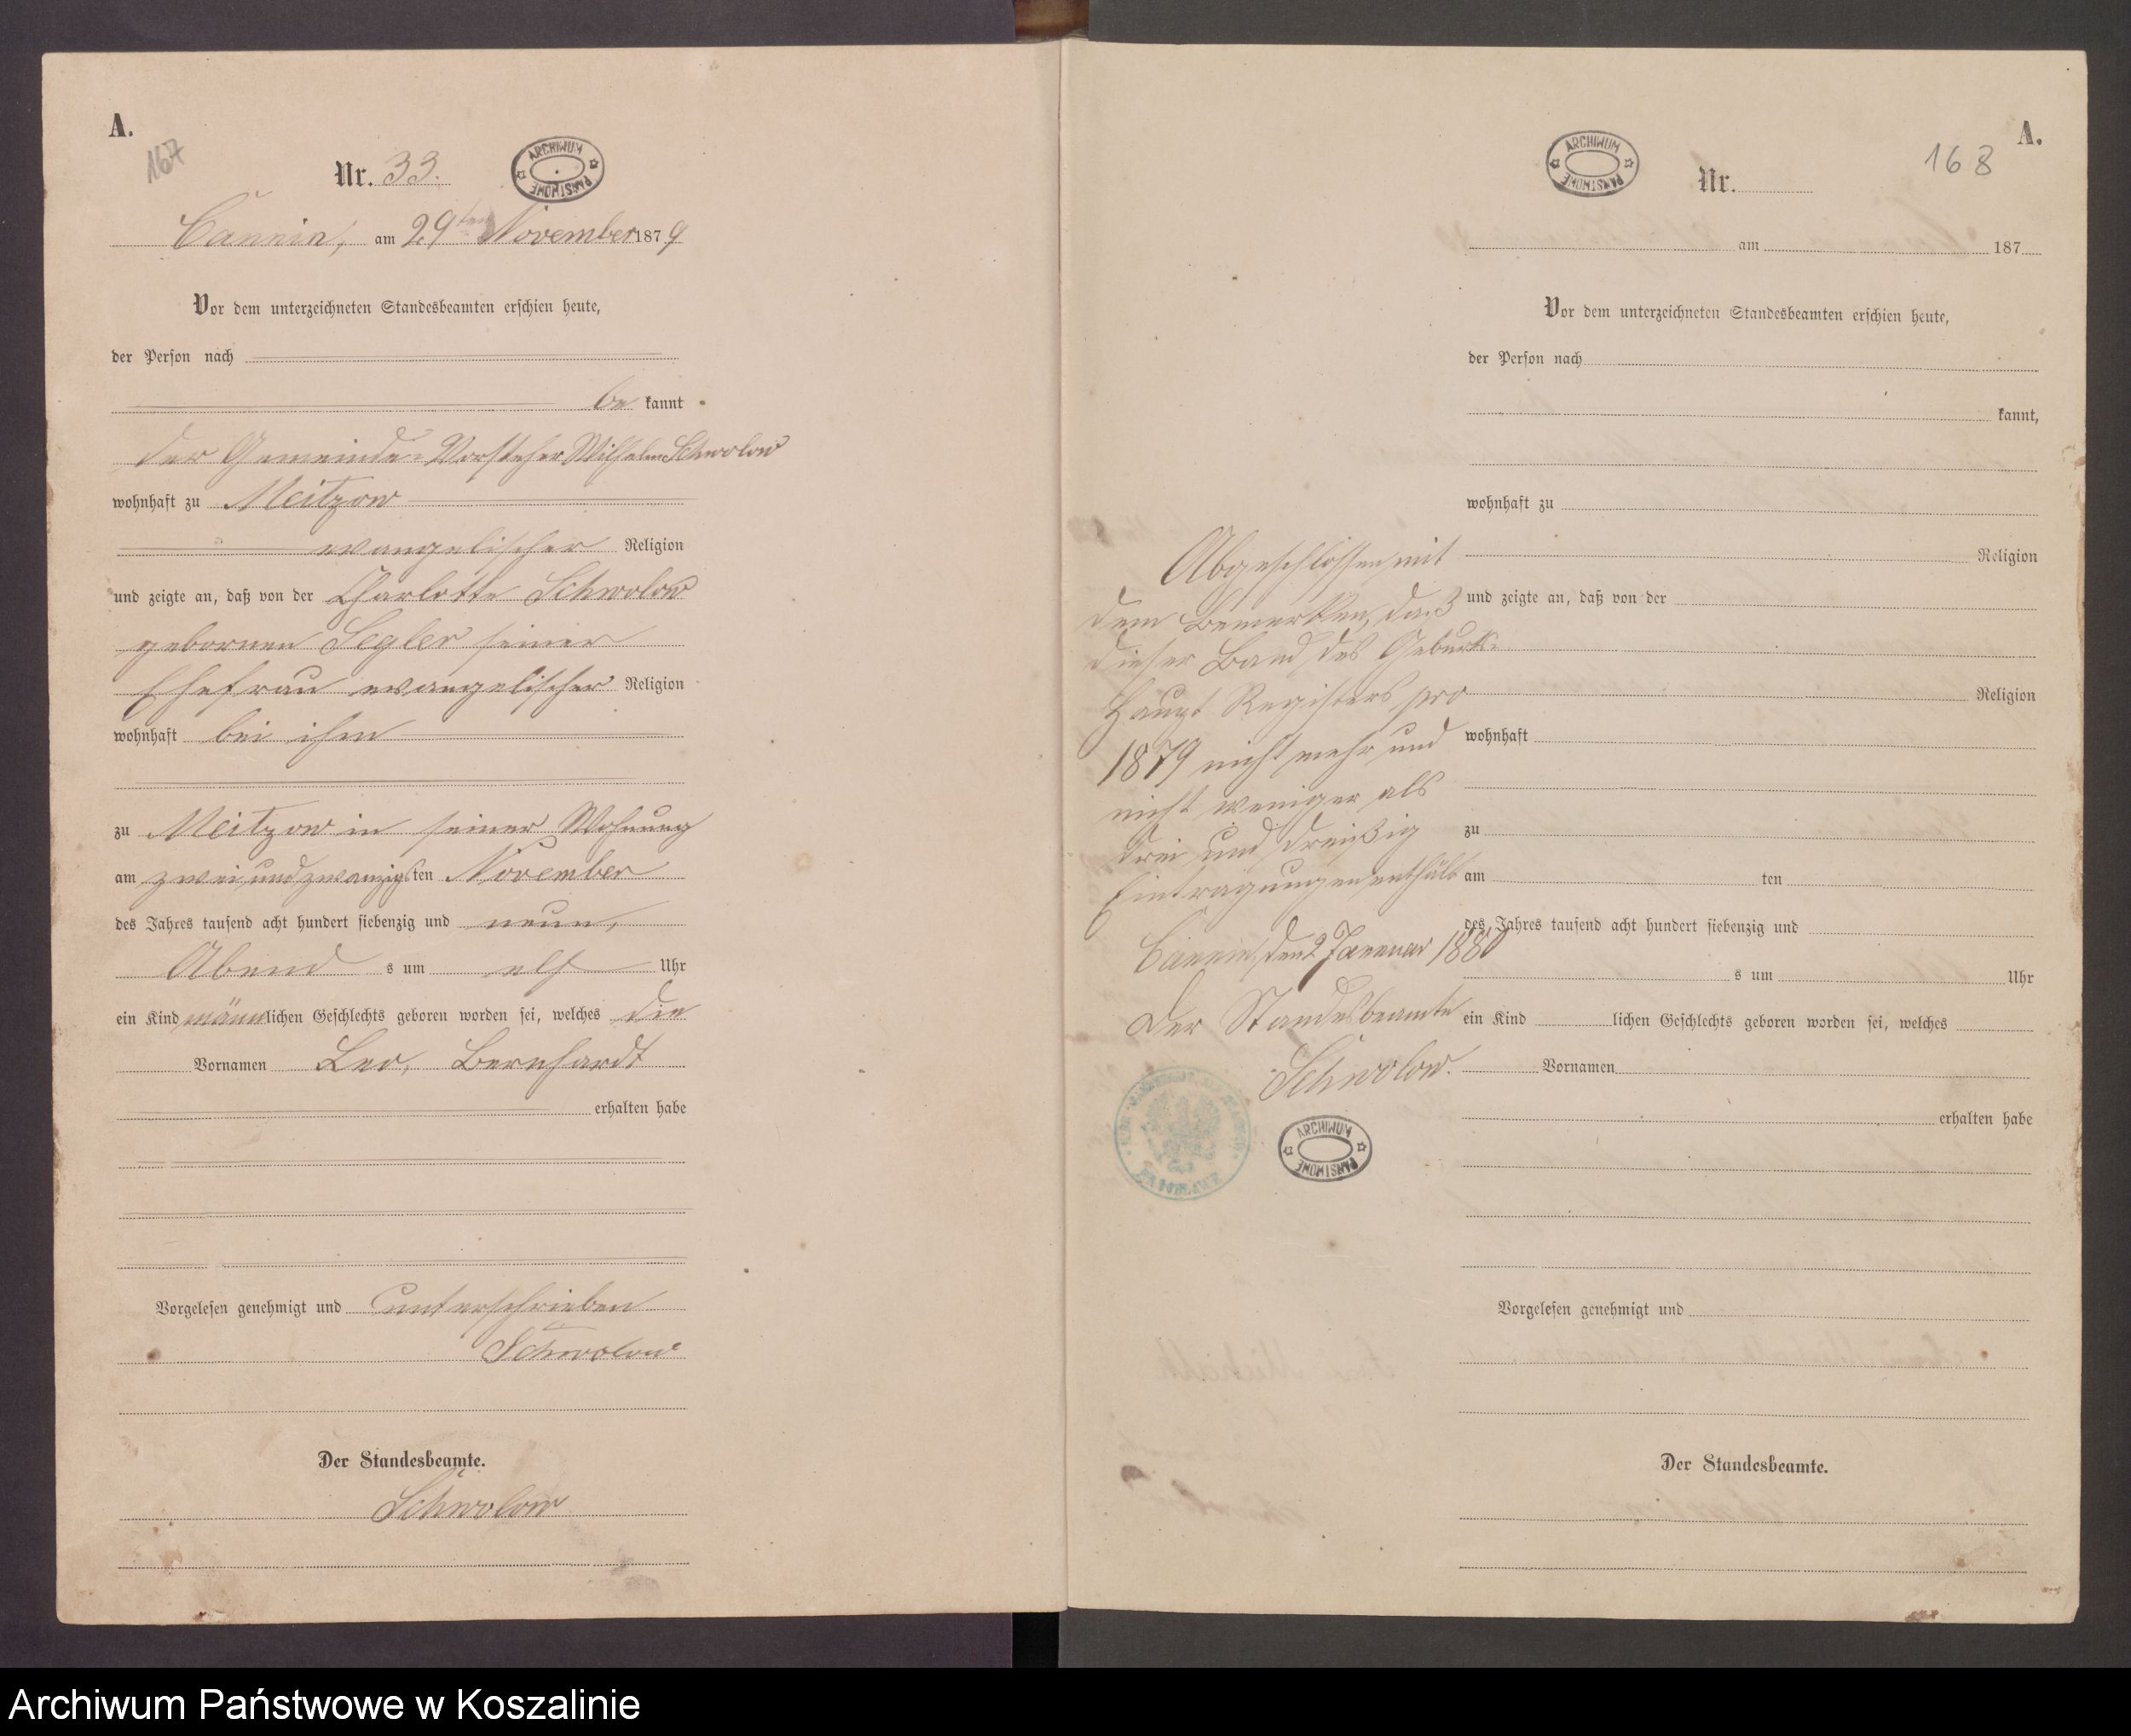 A.
167
Nr. 33.
ARCHIWUM PAŃSTWOWE
Cannin, am 29ten November 1879
Vor dem unterzeichneten Standesbeamten erschien heute,
der Person nach
be kannt
der Gemeinde-Vorsteher Wilhelm Schwolow
wohnhaft zu Meitzow
evangelischer Religion
und zeigte an, daß von der Charlotte Schwolow
gebornen Segler seiner
Ehefrau evangelischer Religion
wohnhaft bei ihm
zu Meitzow in seiner Wohnung
am zwei und zwanzigsten November
des Jahres tausend acht hundert siebenzig und neun,
Abend s um elf Uhr
ein Kind männlichen Geschlechts geboren worden sei, welches die
Vornamen Leo, Bernhardt
erhalten habe
Vorgelesen genehmigt und unterschrieben
Schwolow
Der Standesbeamte.
Schwolow
A.
168
ARCHIWUM PAŃSTWOWE
Nr.
am 187
Vor dem unterzeichneten Standesbeamten erschien heute,
der Person nach
kannt,
wohnhaft zu
Religion
und zeigte an, daß von der
Religion
wohnhaft
zu
am ten
des Jahres tausend acht hundert siebenzig und
s um Uhr
ein Kind lichen Geschlechts geboren worden sei, welches
Vornamen
erhalten habe
Vorgelesen genehmigt und
Der Standesbeamte.
Abgeschlossen mit
dem Bemerken, daß
dieser Band des Geburts-
Haupt Registers pro
1879 nicht mehr und
nicht weniger als
drei und dreißig
Eintragungen enthält
Cannin, den 2 Januar 1880
Der Standesbeamte
Schwolow.
ARCHIWUM PAŃSTWOWE
Archiwum Państwowe w Koszalinie